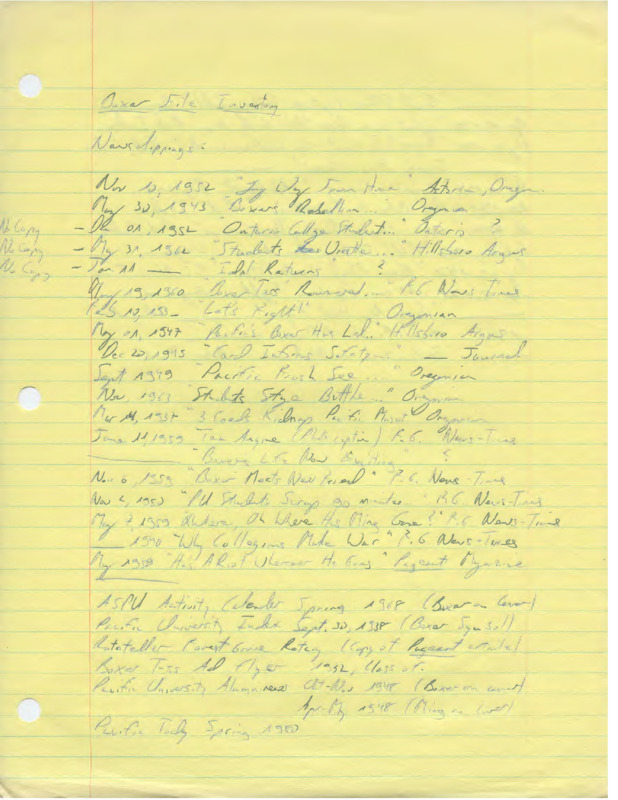 Boxer File Inventory
Newsclippings:
Nov 10, 1952 "Long Way From Home" Astoria, Oregon.
May 30, 1943 "Boxers Rebellion... Oregonian
No Copy - Dec 01, 1952 "Ontario College Student..." Ontario ?
No Copy - May 31, 1962 "Students Wrestle..." Hillsboro Argus
No Copy - Jan 11 — "Idol Returns" ?
May 19, 1960 "Boxer Toss" Renewed..." F.G. News-Times
Feb 10, 1950 "Let's Fight!" Oregonian
May 01, 1947 "Pacific's Boxer Has..." Hillsboro Argus
Dec 20, 1945 "Coed Insures Safety..." — Journal
Sept 1949 "Pacific Frosh See ..." Oregonian
Nov, 1963 "Students Stage Battle..." Oregonian
Mar 14, 1938 "3 Coeds Kidnap Pacific Mascot" Oregonian
June 11, 1959 (Photo caption) F.G. News-Times
— "Boxers Life Now Exciting" ?
Nov 6, 1959 "Boxer Meets New Friend" F.G. News-Times
Nov 6, 1950 "PU Students Scrap 90 minutes.." F.G. News-Times
May 7, 1959 Where, Oh Where Has Ming Gone?" F.G. News-Times
— 1940 "Why Collegians Make War" F.G News-Times
May 1958 "He's A Riot Wherever He Goes" Pageant Magazine
ASPU Activity Calender Spring 1968 (Boxer on Cover)
Pacific University Index Sept. 30, 1938 (Boxer Symbol)
Rotateller Forest Grove Rotary (Copy of Pageant article)
Boxer Toss Ad Flyer 1952, Class of.
Pacific University Alumni news Oct-Nov 1948 (Boxer on cover)
Apr-May 1948 (Ming on cover)
Pacific Today Spring 1980